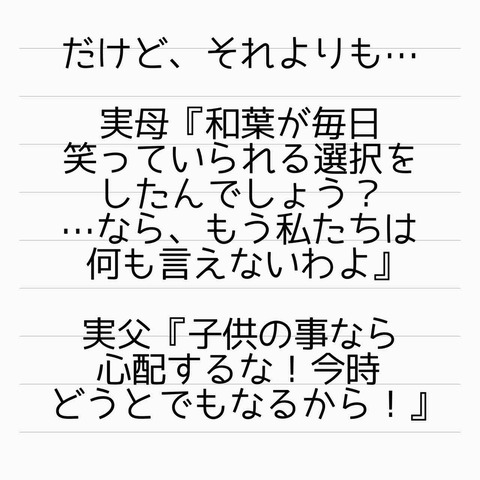 だけど、それよりも…
実母『和葉が毎日
笑っていられる選択を
したんでしょう？
…なら、もう私たちは
何も言えないわよ』
実父『子供の事なら
心配するな！今時
どうとでもなるから！』